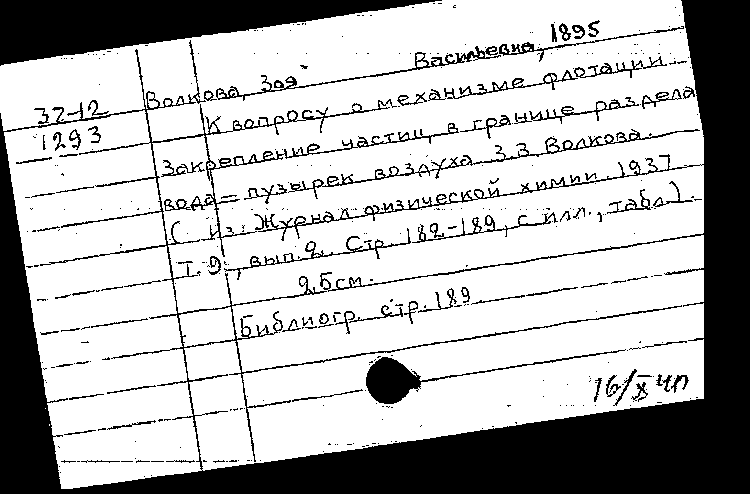 Волкова, Зоя Васильевна, 1895
32-12
1293
К вопросу о механизме флотации
Закрепление частиц в границе раздела
вода = пузырек воздуха З.З. Волкова.
( из: Журнал физической химии. 1937
Т. 9, вып. 2. Стр. 182-189, с илл., табл).
25см.
Библиогр. стр. 189.
16/X